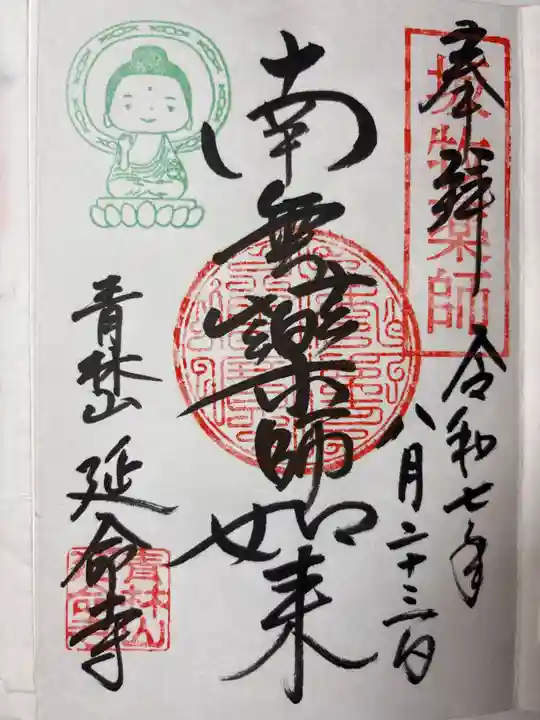 奉拝
令和七年
八月二十三日
南無薬師如来
青林山 延命寺
薬師
青林山
延命寺